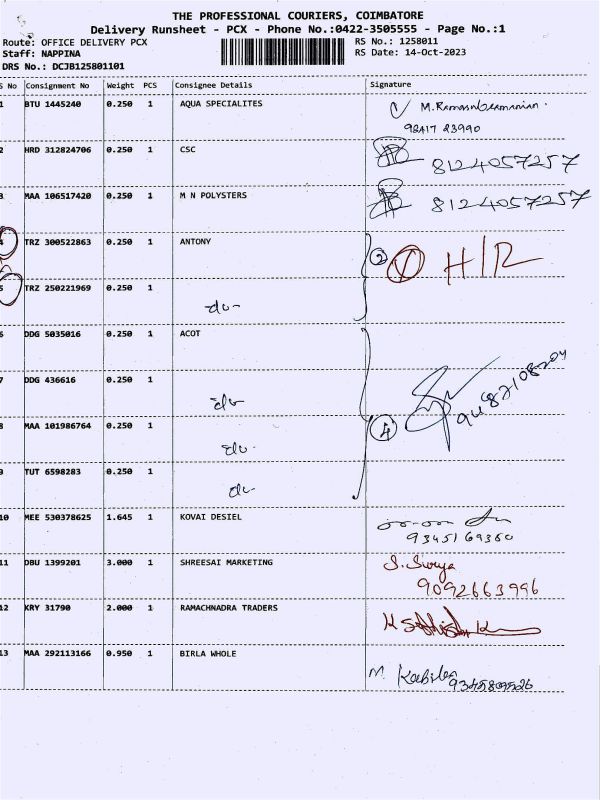 THE PROFESSIONAL COURIERS, COIMBATORE
Delivery Runsheet - PCX - Phone No.:0422-3505555 - Page No.:1
Route: OFFICE DELIVERY PCX
RS No.: 1258011
Staff: NAPPINA
RS Date: 14-Oct-2023
DRS No.: DCJB125801101
S No Consignment No Weight PCS Consignee Details Signature
1 BTU 1445240 0.250 1 AQUA SPECIALITES
98417 23990
2 HRD 312824706 0.250 1 CSC 8124057257
3 MAA 106517420 0.250 1 M N POLYSTERS 8124057257
4 TRZ 300522863 0.250 1 ANTONY 2 H/R
5 TRZ 250221969 0.250 1
-do-
6 DDG 5035016 0.250 1 ACOT
7 DDG 436616 0.250 1
-do-
8 MAA 101986764 0.250 1 4
-do-
9 TUT 6598283 0.250 1
-do-
10 MEE 530378625 1.645 1 KOVAI DESIEL
9345169360
11 DBU 1399201 3.000 1 SHREESAI MARKETING S. Surya
9092663996
12 KRY 31790 2.000 1 RAMACHNADRA TRADERS
13 MAA 292113166 0.950 1 BIRLA WHOLE
M.